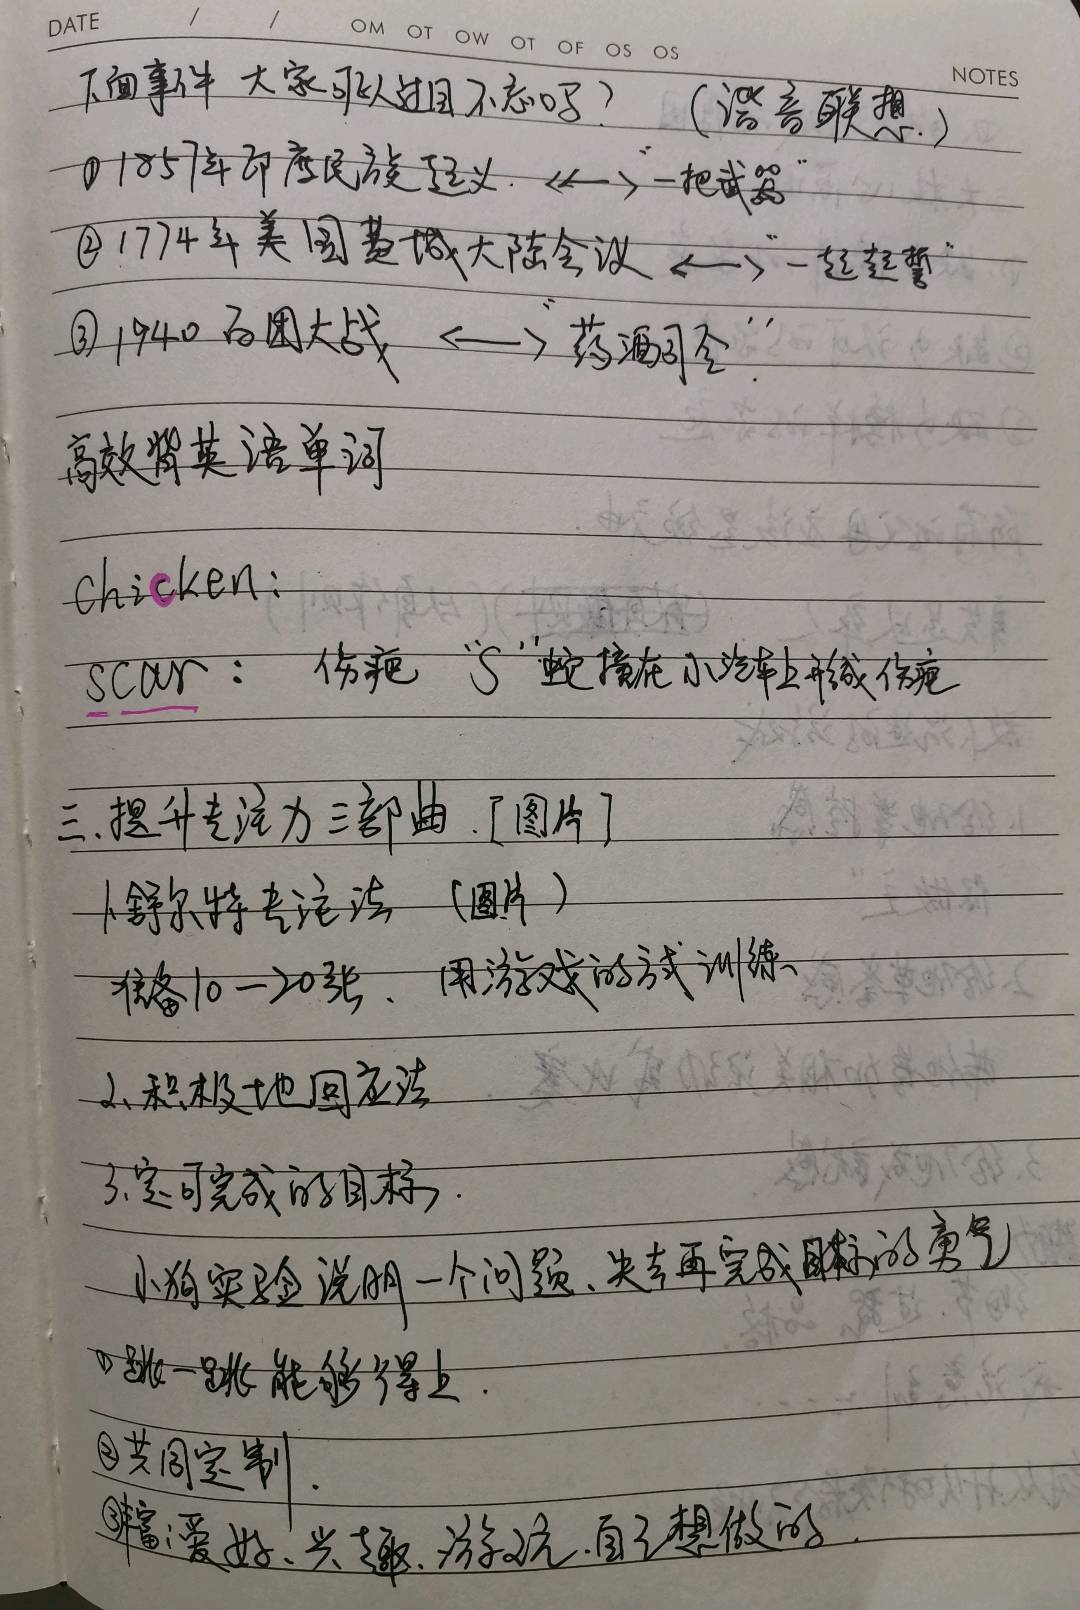 DATE / / OM OT OW OT OF OS OS
NOTES
下面事件 大家可以过目不忘吗？ （谐音联想.）
①1857年印度民族起义. <—> "一把武器"
②1774年美国费城大陆会议 <—> "一起起誓"
③1940百团大战 <—> "药酒司令".
高效背英语单词
chicken:
scar: 伤疤 "S"蛇撞在小汽车上形成伤疤
三.提升专注力三部曲.[图片]
1.舒尔特专注法 (图片)
准备10—20张、用游戏的方式训练、
2、积极地回应法
3.定可完成的目标.
小狗实验说明一个问题、失去再完成目标的勇气
①跳一跳能够得上.
②共同定制.
③丰富:爱好、兴趣、游玩.自己想做的.